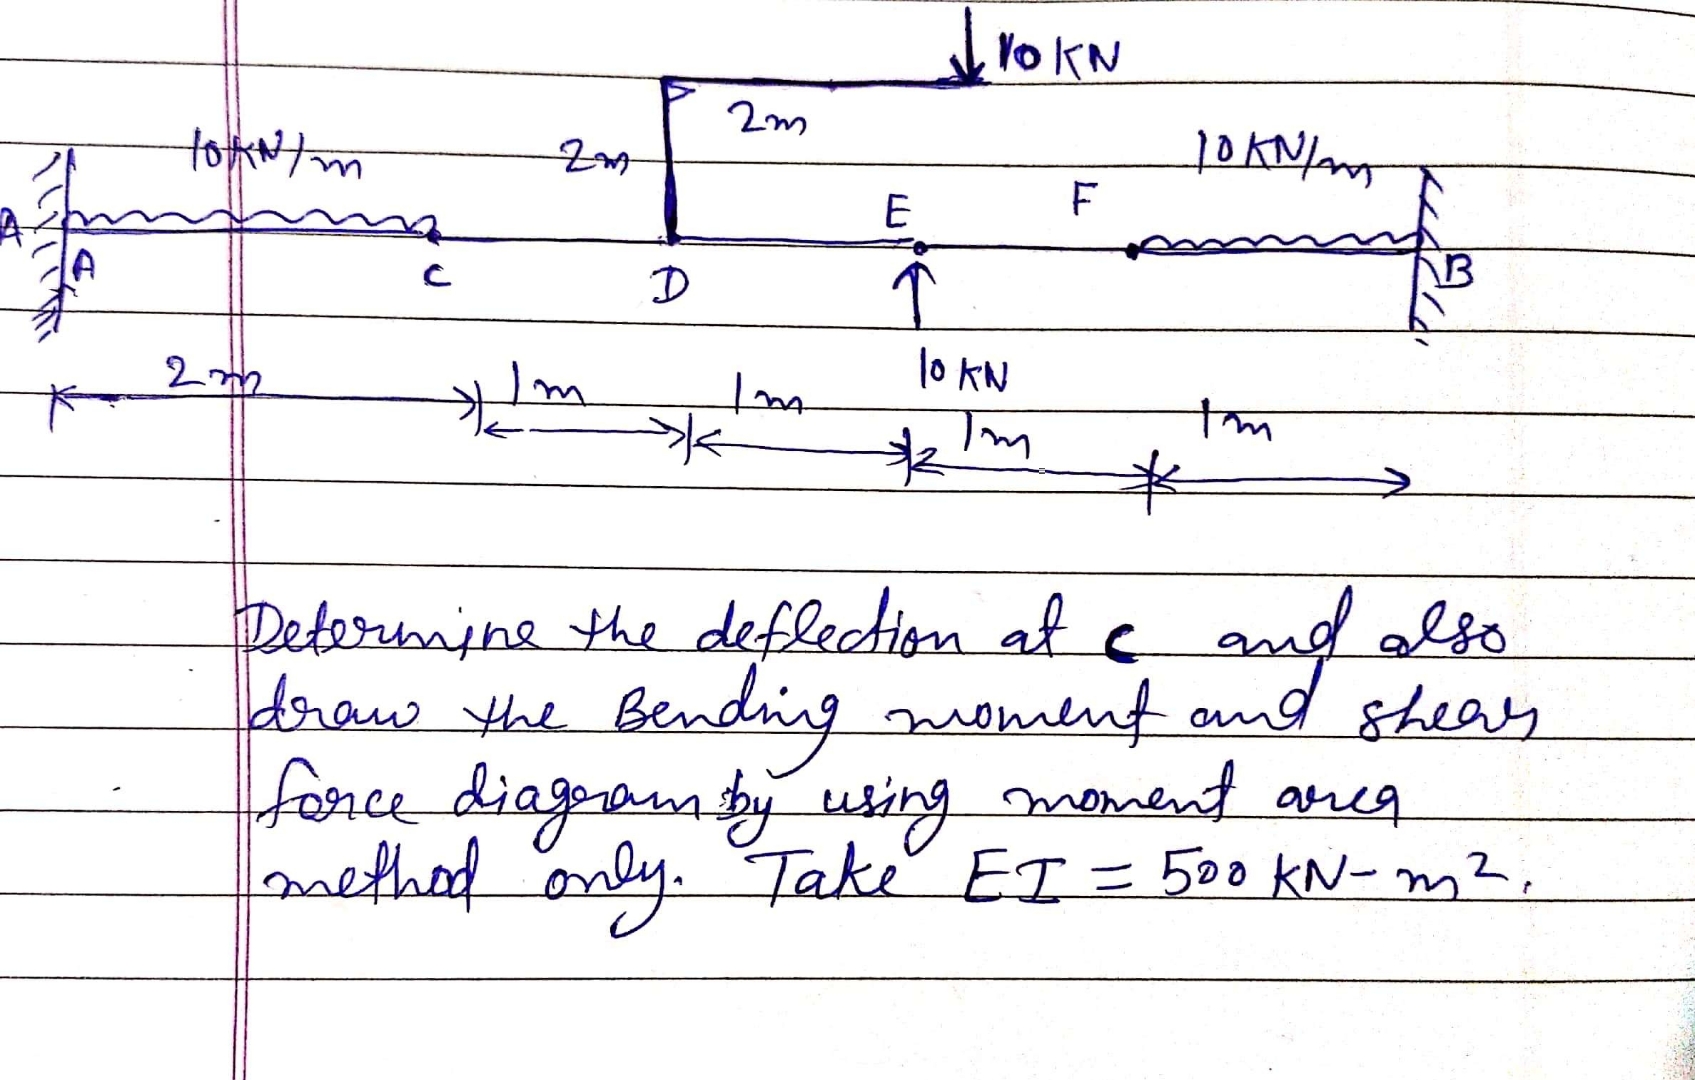 10 KN
2m
10 KN/m
2m
10 KN/m
E
F
A
A
C
D
B
10 KN
2m
1m
1m
1m
1m
Determine the deflection at c and also
draw the Bending moment and shear
force diagram by using moment area
method only. Take EI = 500 KN-m².